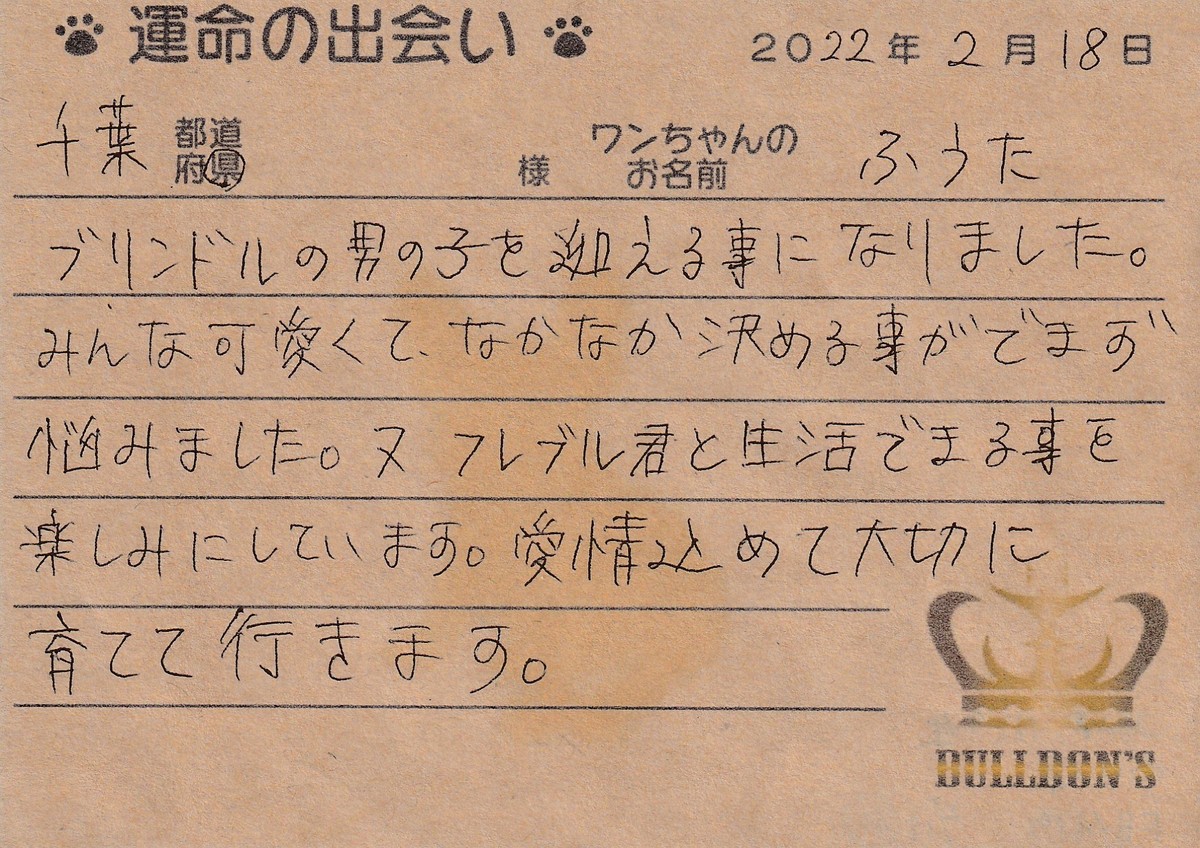 運命の出会い 2022年2月18日
千葉 都道府県 様 ワンちゃんのお名前 ふうた
ブリンドルの男の子を迎える事になりました。
みんな可愛くて、なかなか決める事ができず
悩みました。又 フレブル君と生活できる事を
楽しみにしています。愛情込めて大切に
育てて行きます。
BULLDON'S